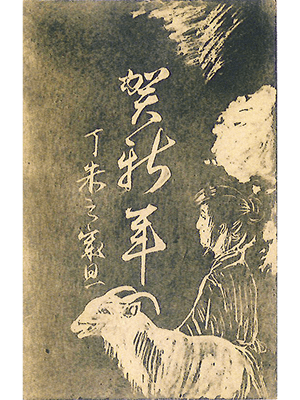 賀新年
丁未之歳旦